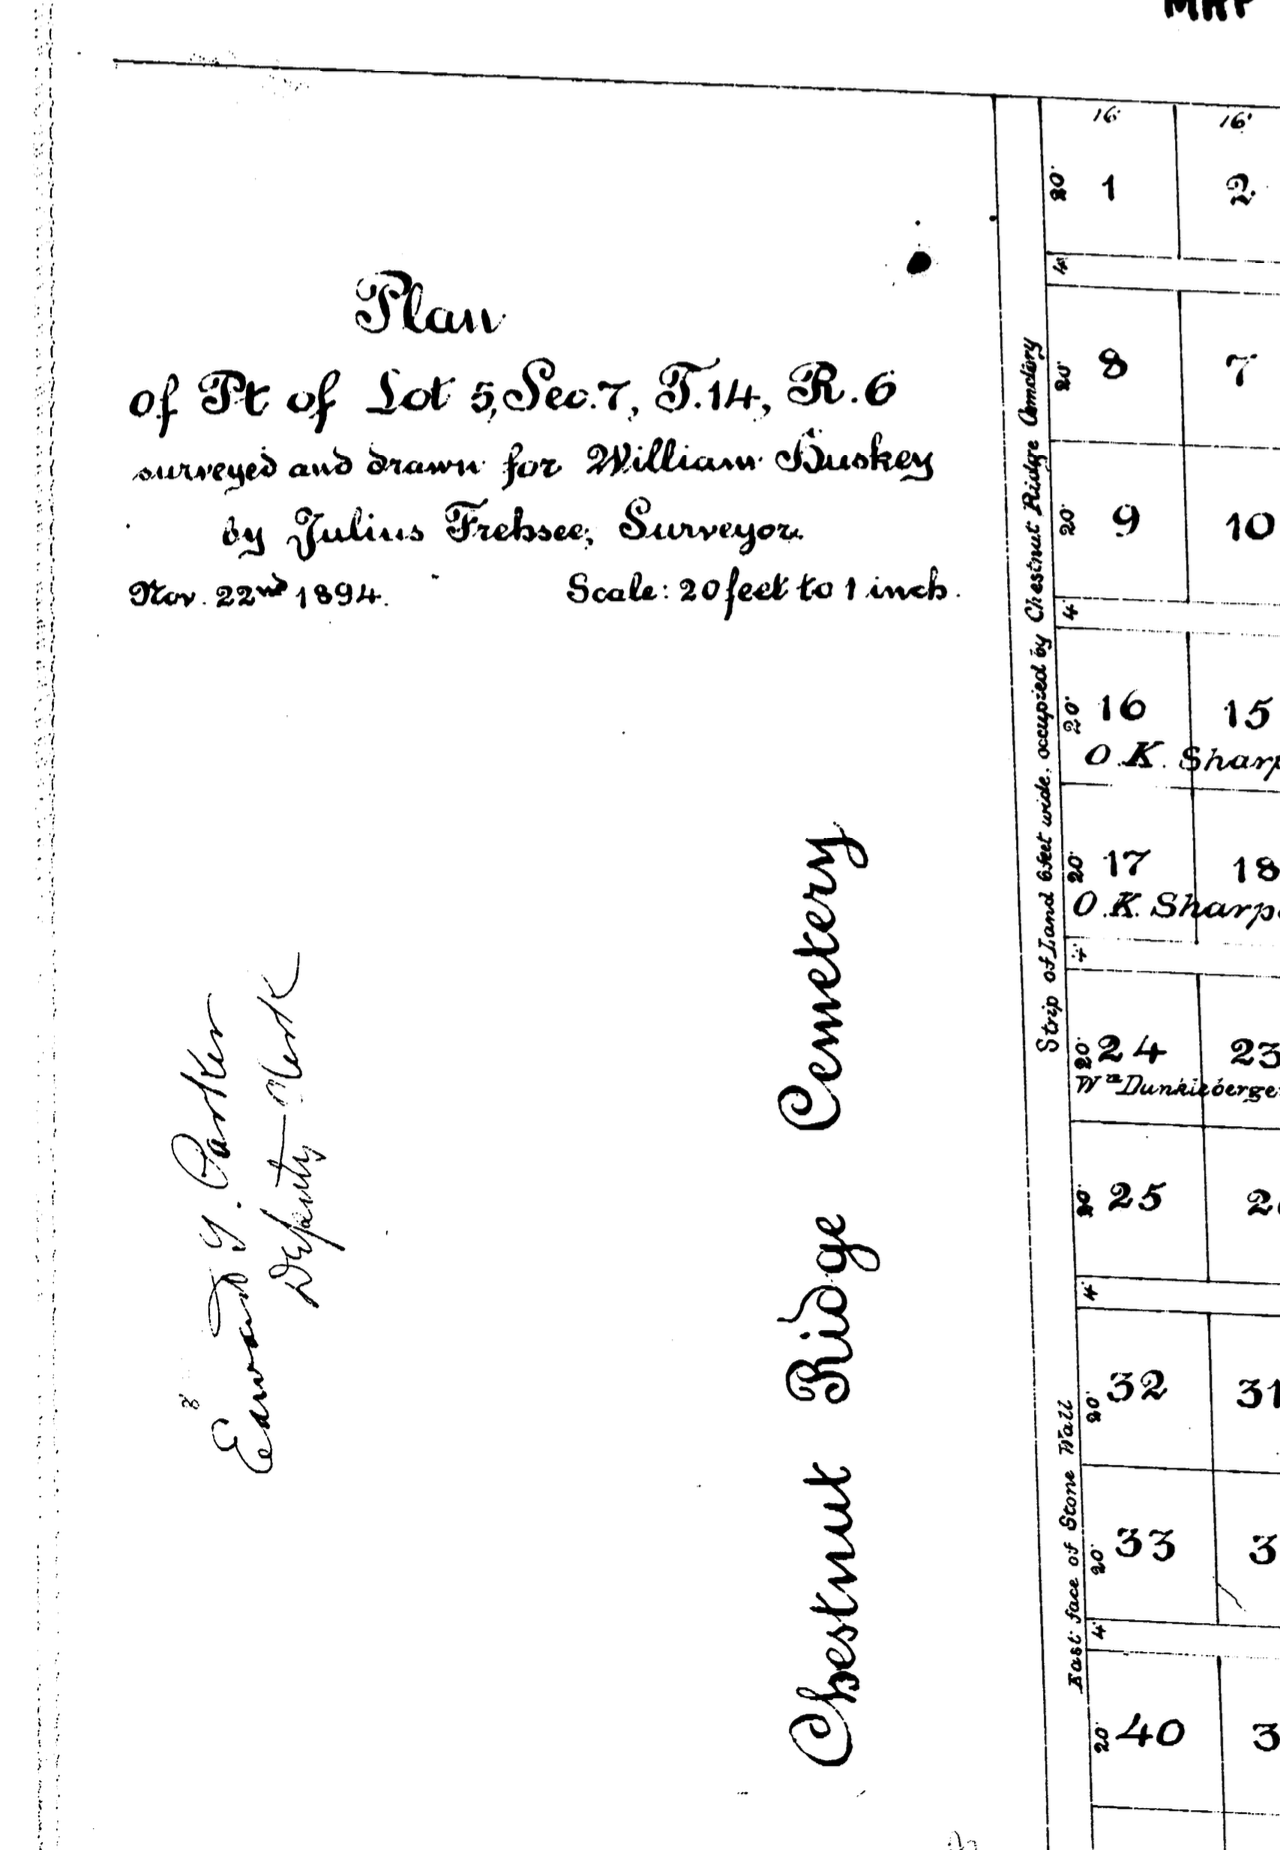 MAP
Plan
of Pt of Lot 5, Sec. 7, T. 14, R. 6
surveyed and drawn for William Huskey
by Julius Frehsee, Surveyor.
Nov. 22nd 1894.
Scale: 20 feet to 1 inch.
Edward Y. Parker
Deputy Clerk
Chestnut Ridge Cemetery
Strip of Land 6 feet wide, occupied by Chestnut Ridge Cemetery
East face of Stone Wall
16' 16'
20' 1 2
4'
20' 8 7
20' 9 10
4'
20' 16 15
O.K. Sharp
20' 17 18
O.K. Sharp
4'
20' 24 23
Wm Dunkleberge
20' 25 2
4'
20' 32 31
20' 33 3
4'
20' 40 3